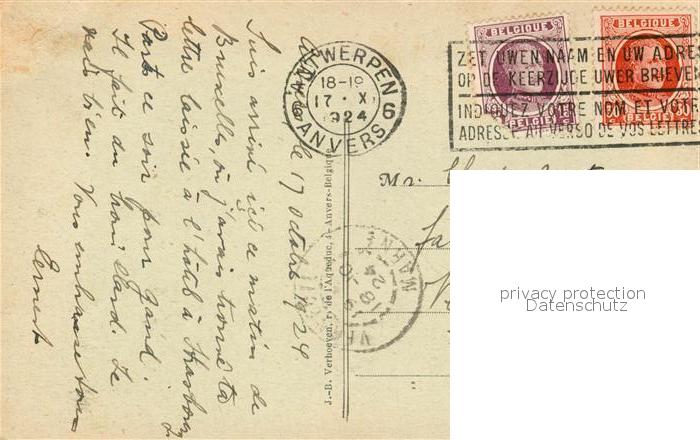 Anvers le 17 octobre 1924
Suis arrivé ici ce matin de
Bruxelles, où j'avais trouvé ta
lettre laissée à l'hôtel à Strasbourg
Pars ce soir pour Gand.
Il fait du brouillard. Je
vais bien. Vous embrasse tous
Ernest
J.-B. Verhoeven, r. de l'Aqueduc, Anvers-Belgique
ANTWERPEN
18-19
17 · X
1924
6 ANVERS 6
BELGIQUE
BELGIE
BELGIQUE
BELGIE
ZET UWEN NAAM EN UW ADRE
OP DE KEERZIJDE UWER BRIEVE
INDIQUEZ VOTRE NOM ET VOTR
ADRESSE AU VERSO DE VOS LETTRE
Mr.
privacy protection
Datenschutz